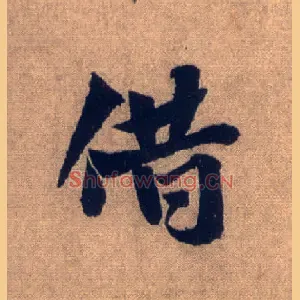 借
Shufawang.CN